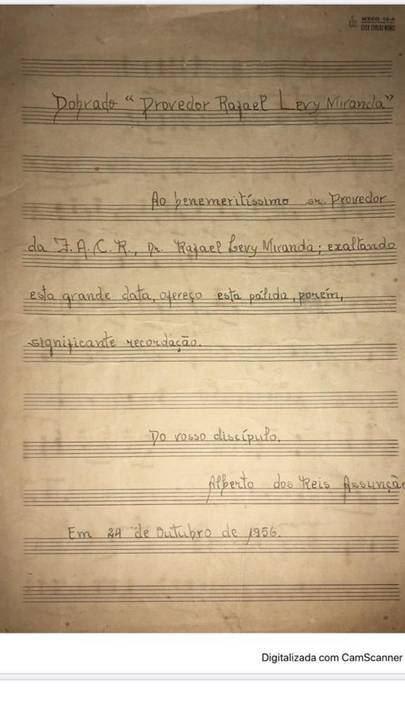 Dobrado "Provedor Rafael Levy Miranda"
Ao benemeritíssimo sr. Provedor
da F.A.C.R., Dr. Rafael Levy Miranda; exaltando
esta grande data, ofereço esta pálida, porém,
significante recordação.
Do vosso discípulo.
Alberto dos Reis Assunção
Em 24 de Outubro de 1956.
Digitalizada com CamScanner